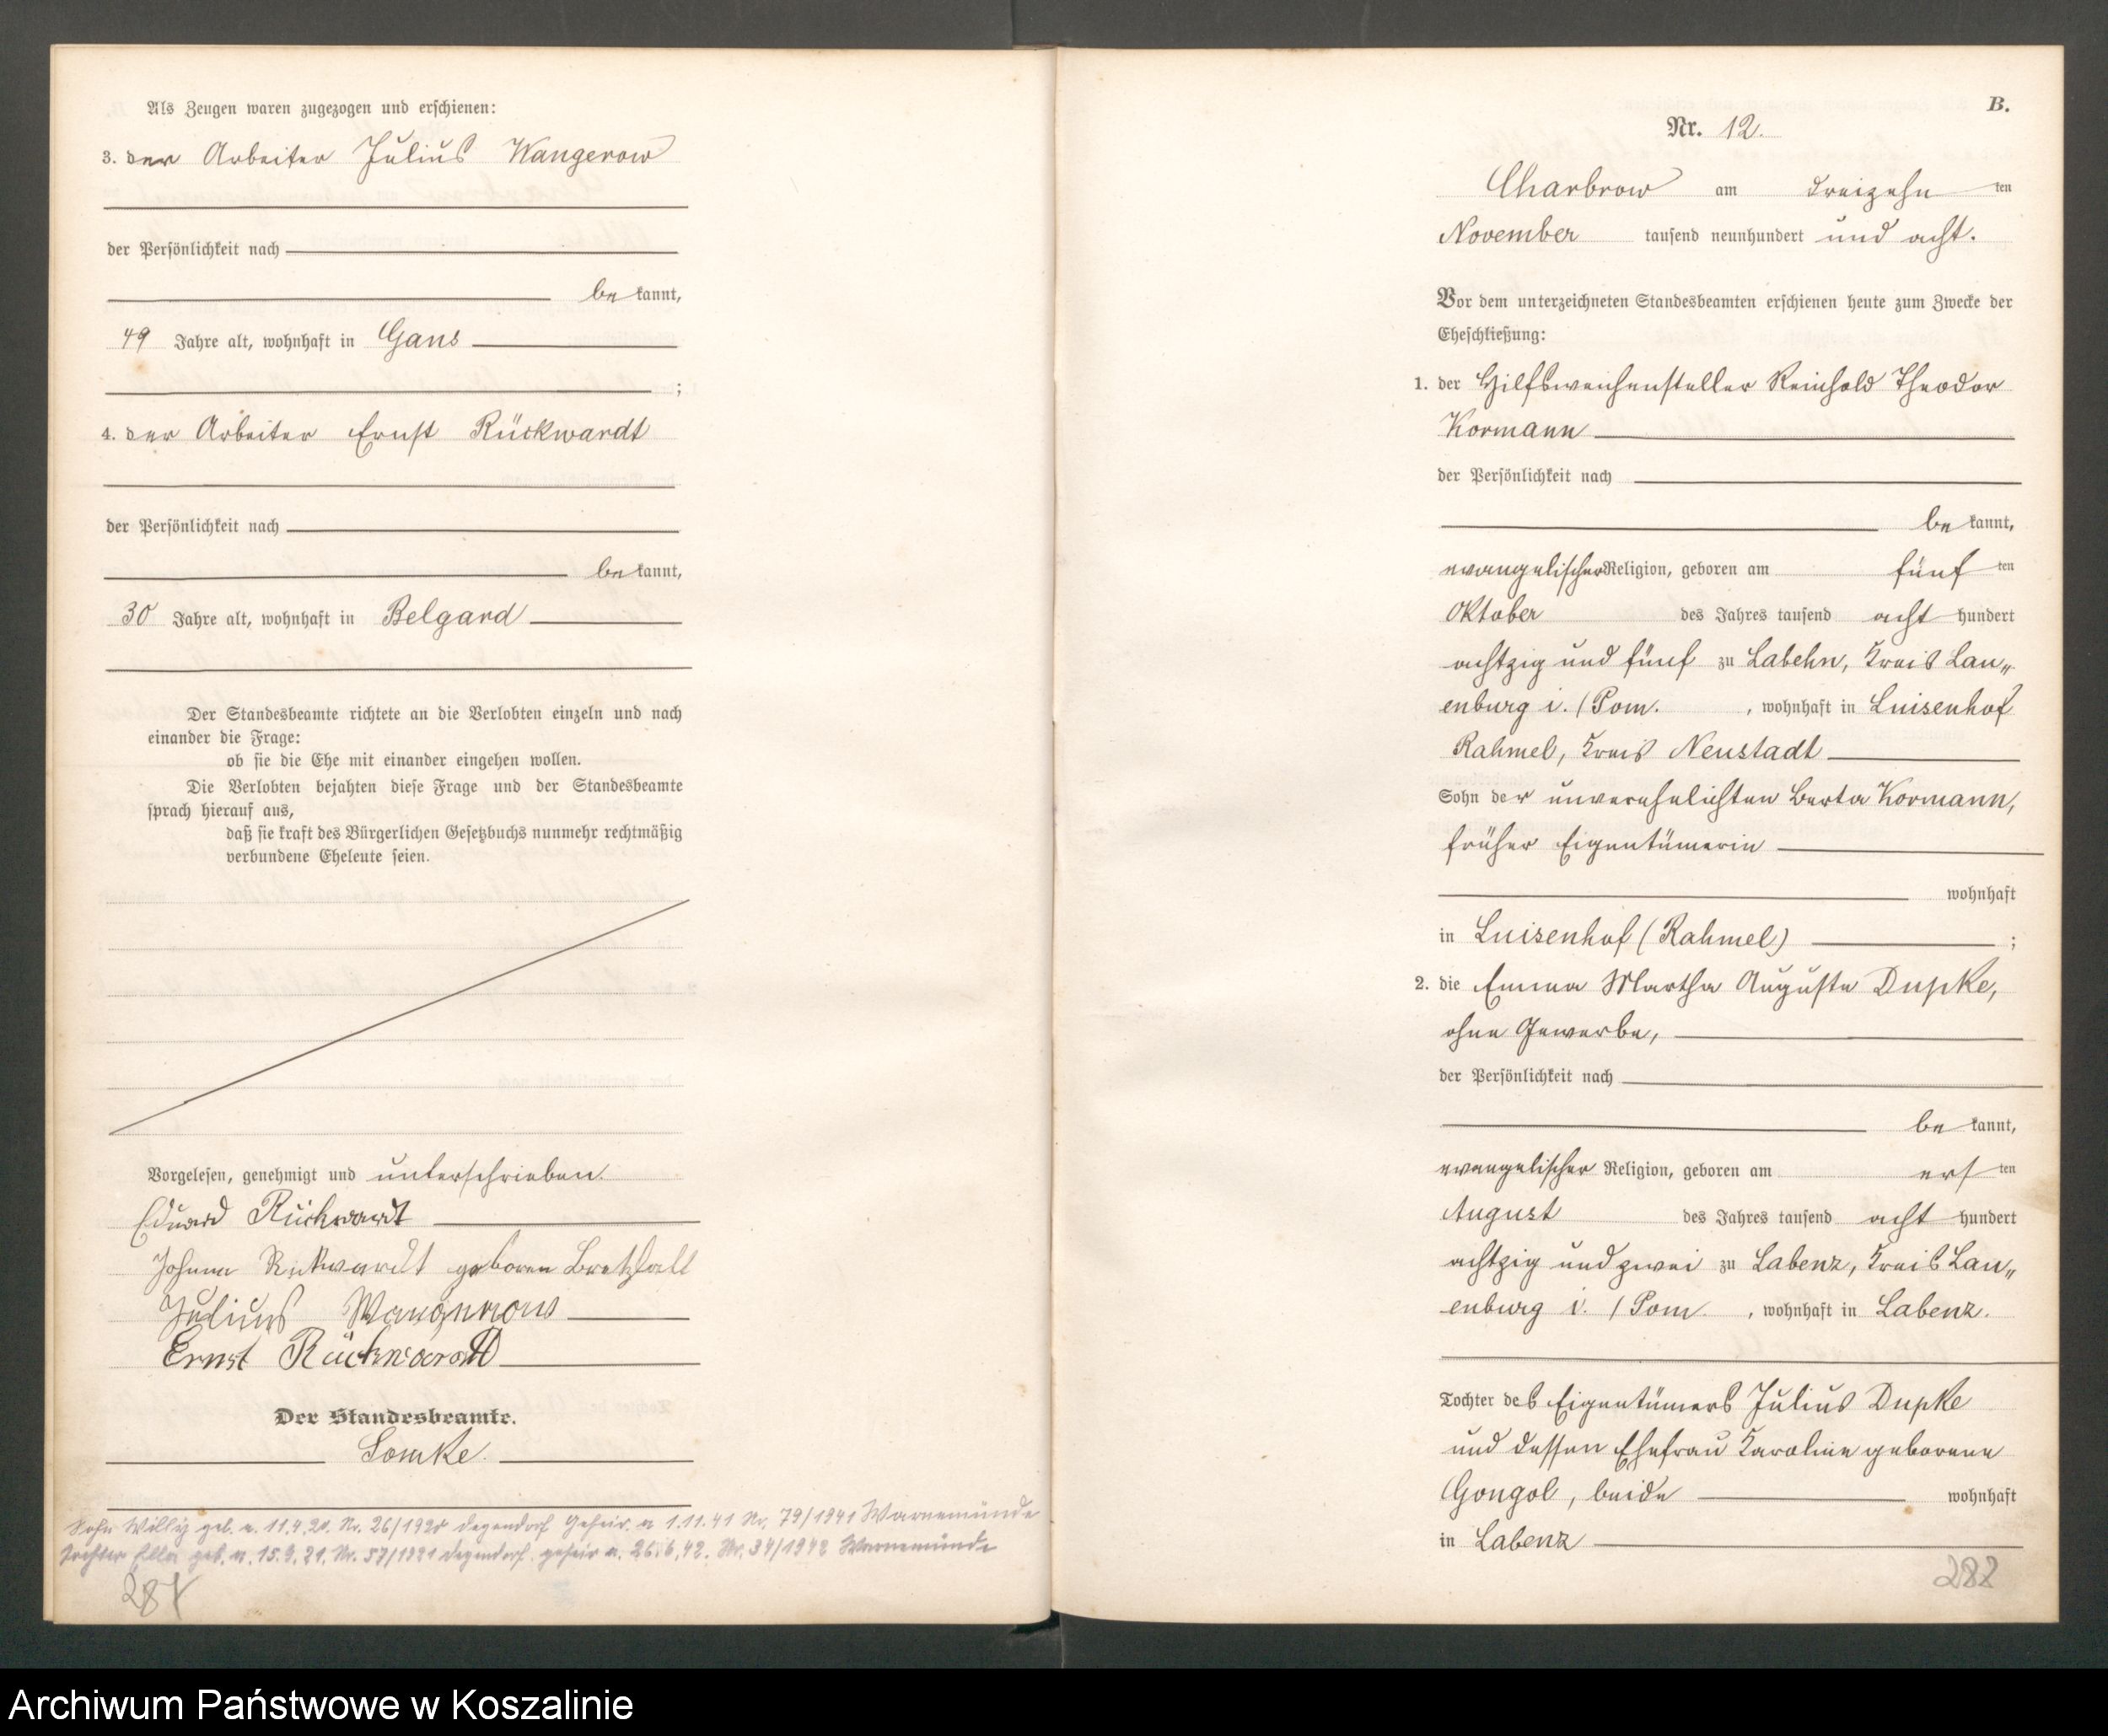 Als Zeugen waren zugezogen und erschienen:
3. der Arbeiter Julius Wangerow
der Persönlichkeit nach
be kannt,
49 Jahre alt, wohnhaft in Gans
;
4. der Arbeiter Ernst Rückwardt
der Persönlichkeit nach
be kannt,
30 Jahre alt, wohnhaft in Belgard
Der Standesbeamte richtete an die Verlobten einzeln und nach
einander die Frage:
ob sie die Ehe mit einander eingehen wollen.
Die Verlobten bejahten diese Frage und der Standesbeamte
sprach hierauf aus,
daß sie kraft des Bürgerlichen Gesetzbuchs nunmehr rechtmäßig
verbundene Eheleute seien.
Vorgelesen, genehmigt und unterschrieben.
Eduard Rückwardt
Rückwardt geboren
Julius Wangerow
Ernst Rückwardt
Der Standesbeamte.
Lomke.
Sohn Willy geb. a. 11.4.20. Nr. 26/1920 Degendorf Geheir. a 1.11.41 Nr. 79/1941 Warnemünde
Tochter Ella geb. a. 15.9.21. Nr. 57/1921 Degendorf. geheir a. 26.6.42. Nr. 34/1942 Warnemünde
B.
Nr. 12.
Charbrow am dreizehn ten
November tausend neunhundert und acht.
Vor dem unterzeichneten Standesbeamten erschienen heute zum Zwecke der
Eheschließung:
1. der Hilfsweichensteller Reinhold Theodor
Kormann
der Persönlichkeit nach
be kannt,
evangelischer Religion, geboren am fünf ten
Oktober des Jahres tausend acht hundert
achtzig und fünf zu Labehn, Kreis Lau„
enburg i. /Pom. , wohnhaft in Luisenhof
Rahmel, Kreis Neustadt
Sohn der unverehelichten Berta Kormann,
früher Eigentümerin
wohnhaft
in Luisenhof (Rahmel) ;
2. die Emma Martha Auguste Dupke,
ohne Gewerbe,
der Persönlichkeit nach
be kannt,
evangelischer Religion, geboren am ers ten
August des Jahres tausend acht hundert
achtzig und zwei zu Labenz, Kreis Lau„
enburg i. /Pom. , wohnhaft in Labenz.
Tochter des Eigentümers Julius Dupke
und dessen Ehefrau Karoline geborene
Gongol, beide wohnhaft
in Labenz
282
Archiwum Państwowe w Koszalinie